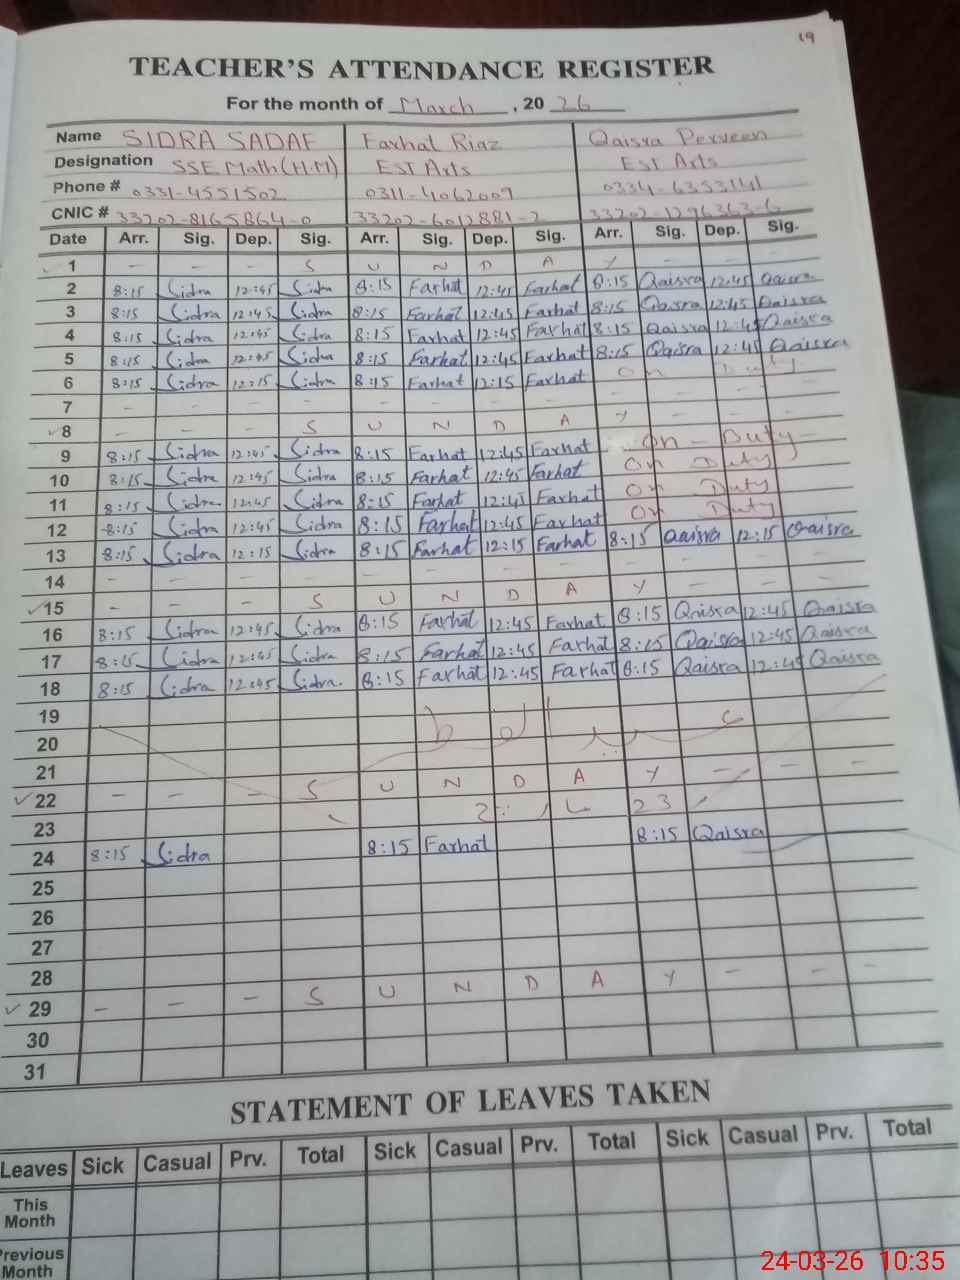 19
TEACHER'S ATTENDANCE REGISTER
For the month of March, 2026
Name SIDRA SADAF Farhat Riaz Qaisra Perveen
Designation SSE Math (H.M) EST Arts EST Arts
Phone # 0331-4551502 0311-4062009 0334-6353141
CNIC # 33202-8165864-0 33202-6012881-2 33202-1296363-6
Date Arr. Sig. Dep. Sig. Arr. Sig. Dep. Sig. Arr. Sig. Dep. Sig.
✓ 1 - - - S U N D A Y - - -
2 8:15 Sidra 12:45 Sidra 8:15 Farhat 12:45 Farhat 8:15 Qaisra 12:45 Qaisra
3 8:15 Sidra 12:45 Sidra 8:15 Farhat 12:45 Farhat 8:15 Qaisra 12:45 Qaisra
4 8:15 Sidra 12:45 Sidra 8:15 Farhat 12:45 Farhat 8:15 Qaisra 12:45 Qaisra
5 8:15 Sidra 12:45 Sidra 8:15 Farhat 12:45 Farhat 8:15 Qaisra 12:45 Qaisra
6 8:15 Sidra 12:15 Sidra 8:15 Farhat 12:15 Farhat On Duty
7 - - - - - - - - - - - -
✓ 8 - - - S U N D A Y - - -
9 8:15 Sidra 12:45 Sidra 8:15 Farhat 12:45 Farhat On - Duty -
10 8:15 Sidra 12:45 Sidra 8:15 Farhat 12:45 Farhat On Duty
11 8:15 Sidra 12:45 Sidra 8:15 Farhat 12:45 Farhat On Duty
12 8:15 Sidra 12:45 Sidra 8:15 Farhat 12:45 Farhat On Duty
13 8:15 Sidra 12:15 Sidra 8:15 Farhat 12:15 Farhat 8:15 Qaisra 12:15 Qaisra
14 - - - - - - - - - - - -
✓ 15 - - - S U N D A Y - - -
16 8:15 Sidra 12:45 Sidra 8:15 Farhat 12:45 Farhat 8:15 Qaisra 12:45 Qaisra
17 8:15 Sidra 12:45 Sidra 8:15 Farhat 12:45 Farhat 8:15 Qaisra 12:45 Qaisra
18 8:15 Sidra 12:45 Sidra 8:15 Farhat 12:45 Farhat 8:15 Qaisra 12:45 Qaisra
19
20
21
✓ 22 - - - S U N D A Y - - -
23 23
24 8:15 Sidra 8:15 Farhat 8:15 Qaisra
25
26
27
28
✓ 29 - - - S U N D A Y - - -
30
31
STATEMENT OF LEAVES TAKEN
Leaves Sick Casual Prv. Total Sick Casual Prv. Total Sick Casual Prv. Total
This Month
Previous Month
24-03-26 10:35